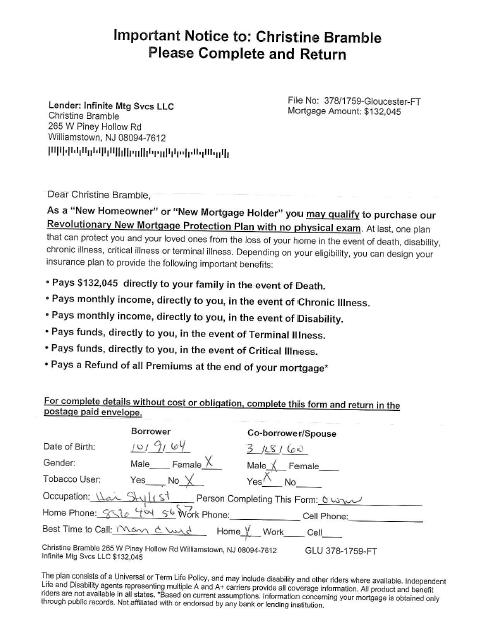 Important Notice to: Christine Bramble
Please Complete and Return
File No: 378/1759-Gloucester-FT
Mortgage Amount: $132,045
Lender: Infinite Mtg Svcs LLC
Christine Bramble
265 W Piney Hollow Rd
Williamstown, NJ 08094-7612
Dear Christine Bramble,
As a “New Homeowner” or “New Mortgage Holder” you may qualify to purchase our
Revolutionary New Mortgage Protection Plan with no physical exam. At last, one plan
that can protect you and your loved ones from the loss of your home in the event of death, disability,
chronic illness, critical illness or terminal illness. Depending on your eligibility, you can design your
insurance plan to provide the following important benefits:
• Pays $132,045 directly to your family in the event of Death.
• Pays monthly income, directly to you, in the event of Chronic Illness.
• Pays monthly income, directly to you, in the event of Disability.
• Pays funds, directly to you, in the event of Terminal Illness.
• Pays funds, directly to you, in the event of Critical Illness.
• Pays a Refund of all Premiums at the end of your mortgage*
For complete details without cost or obligation, complete this form and return in the
postage paid envelope.
Borrower Co-borrower/Spouse
Date of Birth: 10/9/64 3/28/60
Gender: Male___ Female X Male X Female___
Tobacco User: Yes___ No X Yes X No___
Occupation: Hair Stylist Person Completing This Form: owner
Home Phone: Work Phone: Cell Phone:
Best Time to Call: Mon Home Y Work___ Cell___
Christine Bramble 265 W Piney Hollow Rd Williamstown, NJ 08094-7612 GLU 378-1759-FT
Infinite Mtg Svcs LLC $132,045
The plan consists of a Universal or Term Life Policy, and may include disability and other riders where available. Independent
Life and Disability agents representing multiple A and A+ carriers provide all coverage information. All product and benefit
riders are not available in all states. *Based on current assumptions. Information concerning your mortgage is obtained only
through public records. Not affiliated with or endorsed by any bank or lending institution.